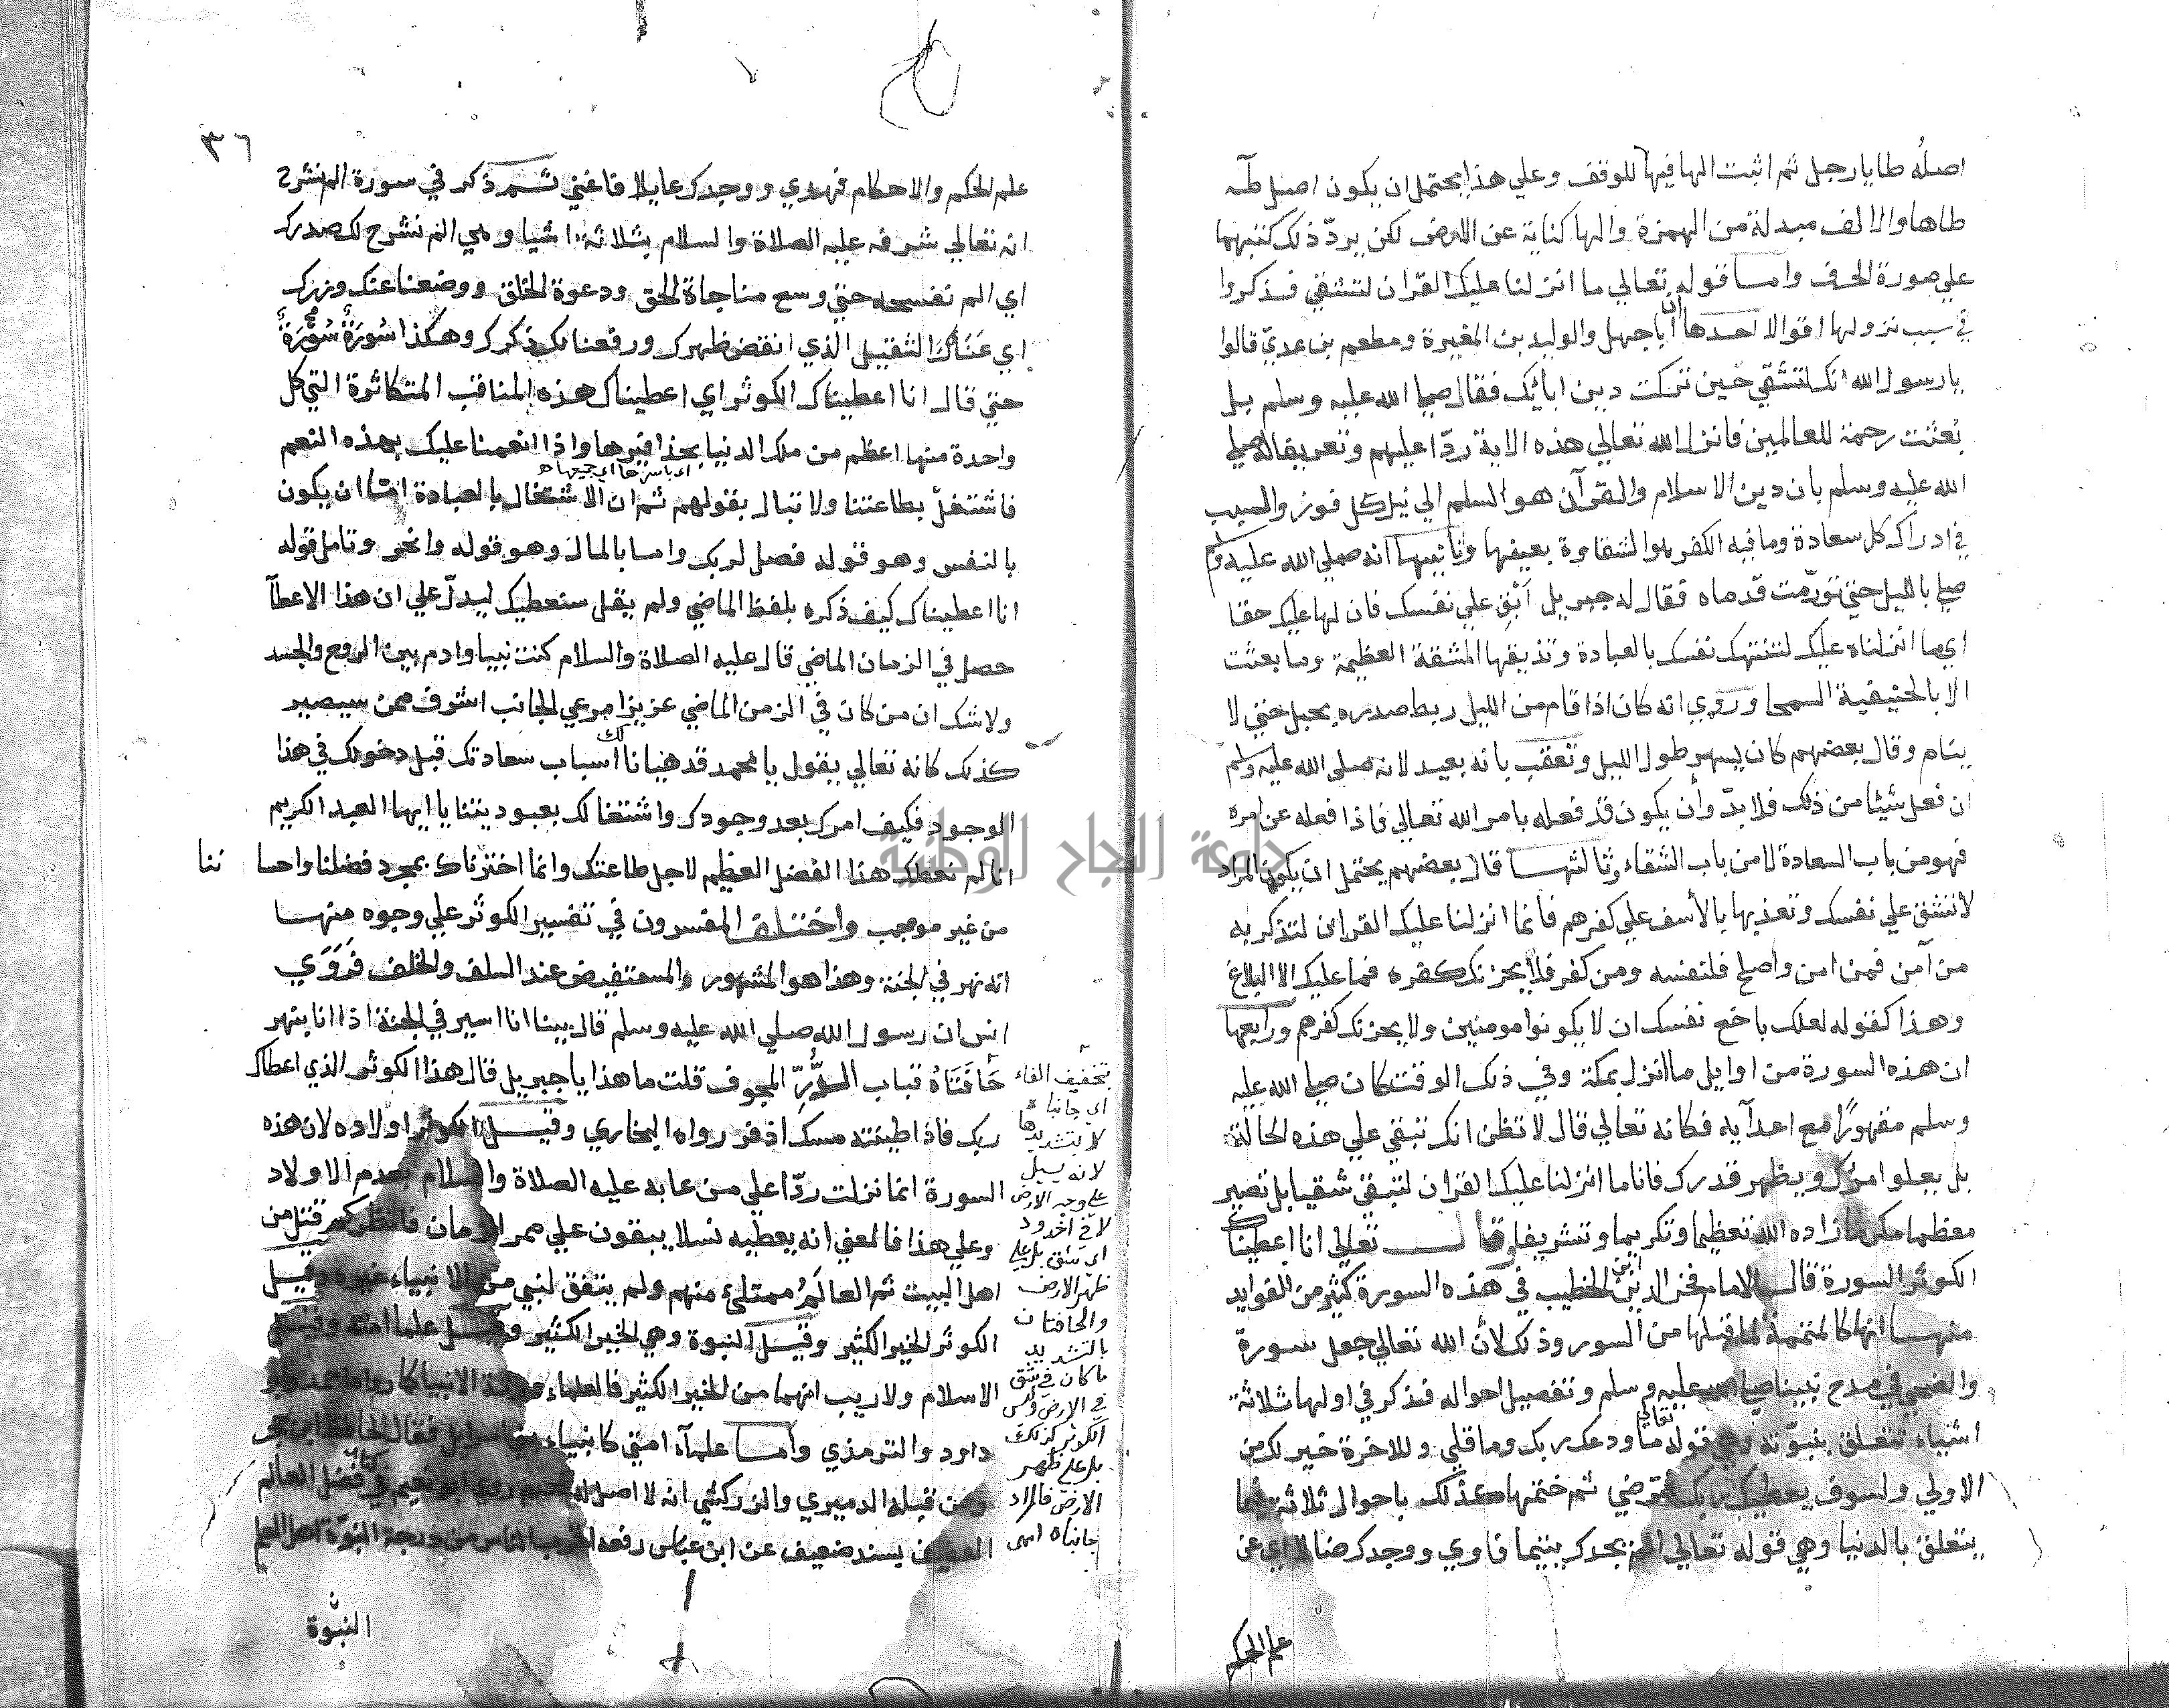 اصله طا يا رجل ثم اثبت الها فيها للوقف وعلي هذا يحتمل ان يكون اصل طه
طاها والالف مبدلة من الهمزة والها كناية عن الارض لكن يردّ ذلك كتبهما
علي صورة الحرف واما قوله تعالي ما انزلنا عليك القران لتشقي فذكروا
في سبب نزولها اقوالا احدها ان اباجهل والوليد بن المغيرة ومطعم بن عديّ قالوا
يا رسول الله انك لتشقي حين تركت دين ابائك فقال صلي الله عليه وسلم بل
بعثت رحمة للعالمين فانزل الله تعالي هذه الاية ردّا عليهم وتعريفا له صلي
الله عليه وسلم بان دين الاسلام والقرآن هو السلم الي نيل كل فوز والسبب
في ادراك كل سعادة وما فيه الكفرة هو الشقاوة بعينها وثانيها انه صلي الله عليه وسلم
صلي بالليل حتي تورّمت قدماه فقال له جبريل أبق علي نفسك فان لها عليك حقا
اي ما انزلناه عليك لتنهك نفسك بالعبادة وتذيقها المشقة العظيمة وما بعثت
الا بالحنيفية السمحا وروي انه كان اذا قام من الليل ربط صدره بحبل حتي لا
ينام وقال بعضهم كان يسهر طول الليل وتعقب بانه بعيد لانه صلي الله عليه وسلم
ان فعل شيئا من ذلك فلا بدّ وأن يكون قد فعله بامر الله تعالي فاذا فعله عن امره
فهو من باب السعادة لا من باب الشقاء وثالثها قال بعضهم يحتمل ان يكون المراد
لا تشق علي نفسك وتعذبها بالأسف علي كفرهم فانما انزلنا عليك القران لتذكر به
من آمن فمن امن واصلح فلنفسه ومن كفر فلا يحزنك كفره فما عليك الا البلاغ
وهذا كقوله لعلك باخع نفسك ان لا يكونوا مومنين ولا يحزنك كفرهم ورابعها
ان هذه السورة من اوايل ما انزل بمكة وفي ذلك الوقت كان صلي الله عليه
وسلم مقهورًا مع اعدآيه فكانه تعالي قال لا تظن انك تبقي علي هذه الحالة
بل يعلوا امرك ويظهر قدرك فانا ما انزلنا عليك القران لتبقي شقيا بل تصير
معظما مكرما زاده الله تعظيما وتكريما وتشريفا وقال تعالي انا اعطيناك
الكوثر السورة قال الامام فخر الدين ابن الخطيب في هذه السورة كثير من الفوايد
منها انها كالمتممة لما قبلها من السور وذلك لأن الله تعالي جعل سورة
والضحي في مدح نبينا صلي الله عليه وسلم وتفصيل احواله فذكر في اولها ثلاثة
اشياء تتعلق بنبوّته وهي قوله تعالي ما ودعك ربك وما قلي وللاخرة خير لك من
الاولي ولسوف يعطيك ربك فترضي ثم ختمها كذلك باحوال ثلاثة فيما
يتعلق بالدنيا وهي قوله تعالي الم يجدك يتيما فاوي ووجدك ضالا اي عن
علم الحكم
٣٦
علم الحكم والاحكام فهدي ووجدك عايلا فاغني ثم ذكر في سورة الم نشرح
انه تعالي شرفه عليه الصلاة والسلام بثلاثة اشيا وهي الم نشرح لك صدرك
اي الم نفسحه حتي وسع مناجاة الحق ودعوة الخلق ووضعنا عنك وزرك
اي عناك الثقيل الذي انقض ظهرك ورفعنا لك ذكرك وهكذا سُورَةً سُورَةً
حتي قال انا اعطيناك الكوثر اي اعطيناك هذه المناقب المتكاثرة التي كل
واحدة منها اعظم من ملك الدنيا بحذافيرها واذا انعمنا عليك بهذه النعم
اي باسرها اي جميعها
فاشتغل بطاعتنا ولا تبال بقولهم ثم ان الاشتغال بالعبادة امّا ان يكون
بالنفس وهو قوله فصل لربك واما بالمال وهو قوله وانحر وتامل قوله
انا اعطيناك كيف ذكره بلفظ الماضي ولم يقل سنعطيك ليدلّ علي ان هذا الاعطآ
حصل في الزمان الماضي قال عليه الصلاة والسلام كنت نبيا وادم بين الروح والجسد
ولا شك ان من كان في الزمن الماضي عزيزا مرعي الجانب اشرف ممن سيصير
كذلك كانه تعالي يقول يا محمد قد هيانا لك اسباب سعادتك قبل دخولك في هذا
الوجود فكيف امرك بعد وجودك واشتغالك بعبوديتنا يا ايها العبد الكريم
انا لم نعطك هذا الفضل العظيم لاجل طاعتك وانما اخترناك بمجرد فضلنا واحسا ننا
من غير موجب واختلف المفسرون في تفسير الكوثر علي وجوه منها
انه نهر في الجنة وهذا هو المشهور والمستفيض عند السلف والخلف فروي
انس ان رسول الله صلي الله عليه وسلم قال بينا انا اسير في الجنة اذا انا بنهر
حَافَتَاهُ قباب الدُّرِّ المجوف قلت ما هذا يا جبريل قال هذا الكوثر الذي اعطاك
ربك فاذا طينته مسك اذفر رواه البخاري وقيل الكوثر اولاده لان هذه
السورة انما نزلت ردّا علي من عابه عليه الصلاة والسلام بعدم الاولاد
وعلي هذا فالمعني انه يعطيه نسلا يبقون علي ممر الزمان فانظر كم قتل من
اهل البيت ثم العالَمُ ممتلئ منهم ولم يتفق لنبي من الانبياء غيره وقيل
الكوثر الخير الكثير وقيل النبوة وهي الخير الكثير وقيل علما امته وقيل
الاسلام ولا ريب انهما من الخير الكثير فالعلماء ورثة الانبيا كما رواه احمد وابو
داود والترمذي وأما علمآء امتي كانبياء بني اسرايل فقال الحافظ ابن حجر
ومن قبله الدميري والزركشي انه لا اصل له نعم روي ابو نعيم في كتاب فضل العالم
العفيف بسند ضعيف عن ابن عباس رفعه اقرب الناس من درجة النبوّة اهل العلم
النبوة
بتخفيف الفاء
اي جانباه
لا بتشديدها
لانه يسيل
علي وجه الارض
لا في اخدود
اي شق بل علي
ظهر الارض
والحافتان
بالتشديد
ما كان في شق
في الارض وليس
الكوثر كذلك
بل علي ظهر
الارض فالمراد
جانباه انتهى
جامعة النجاح الوطنية